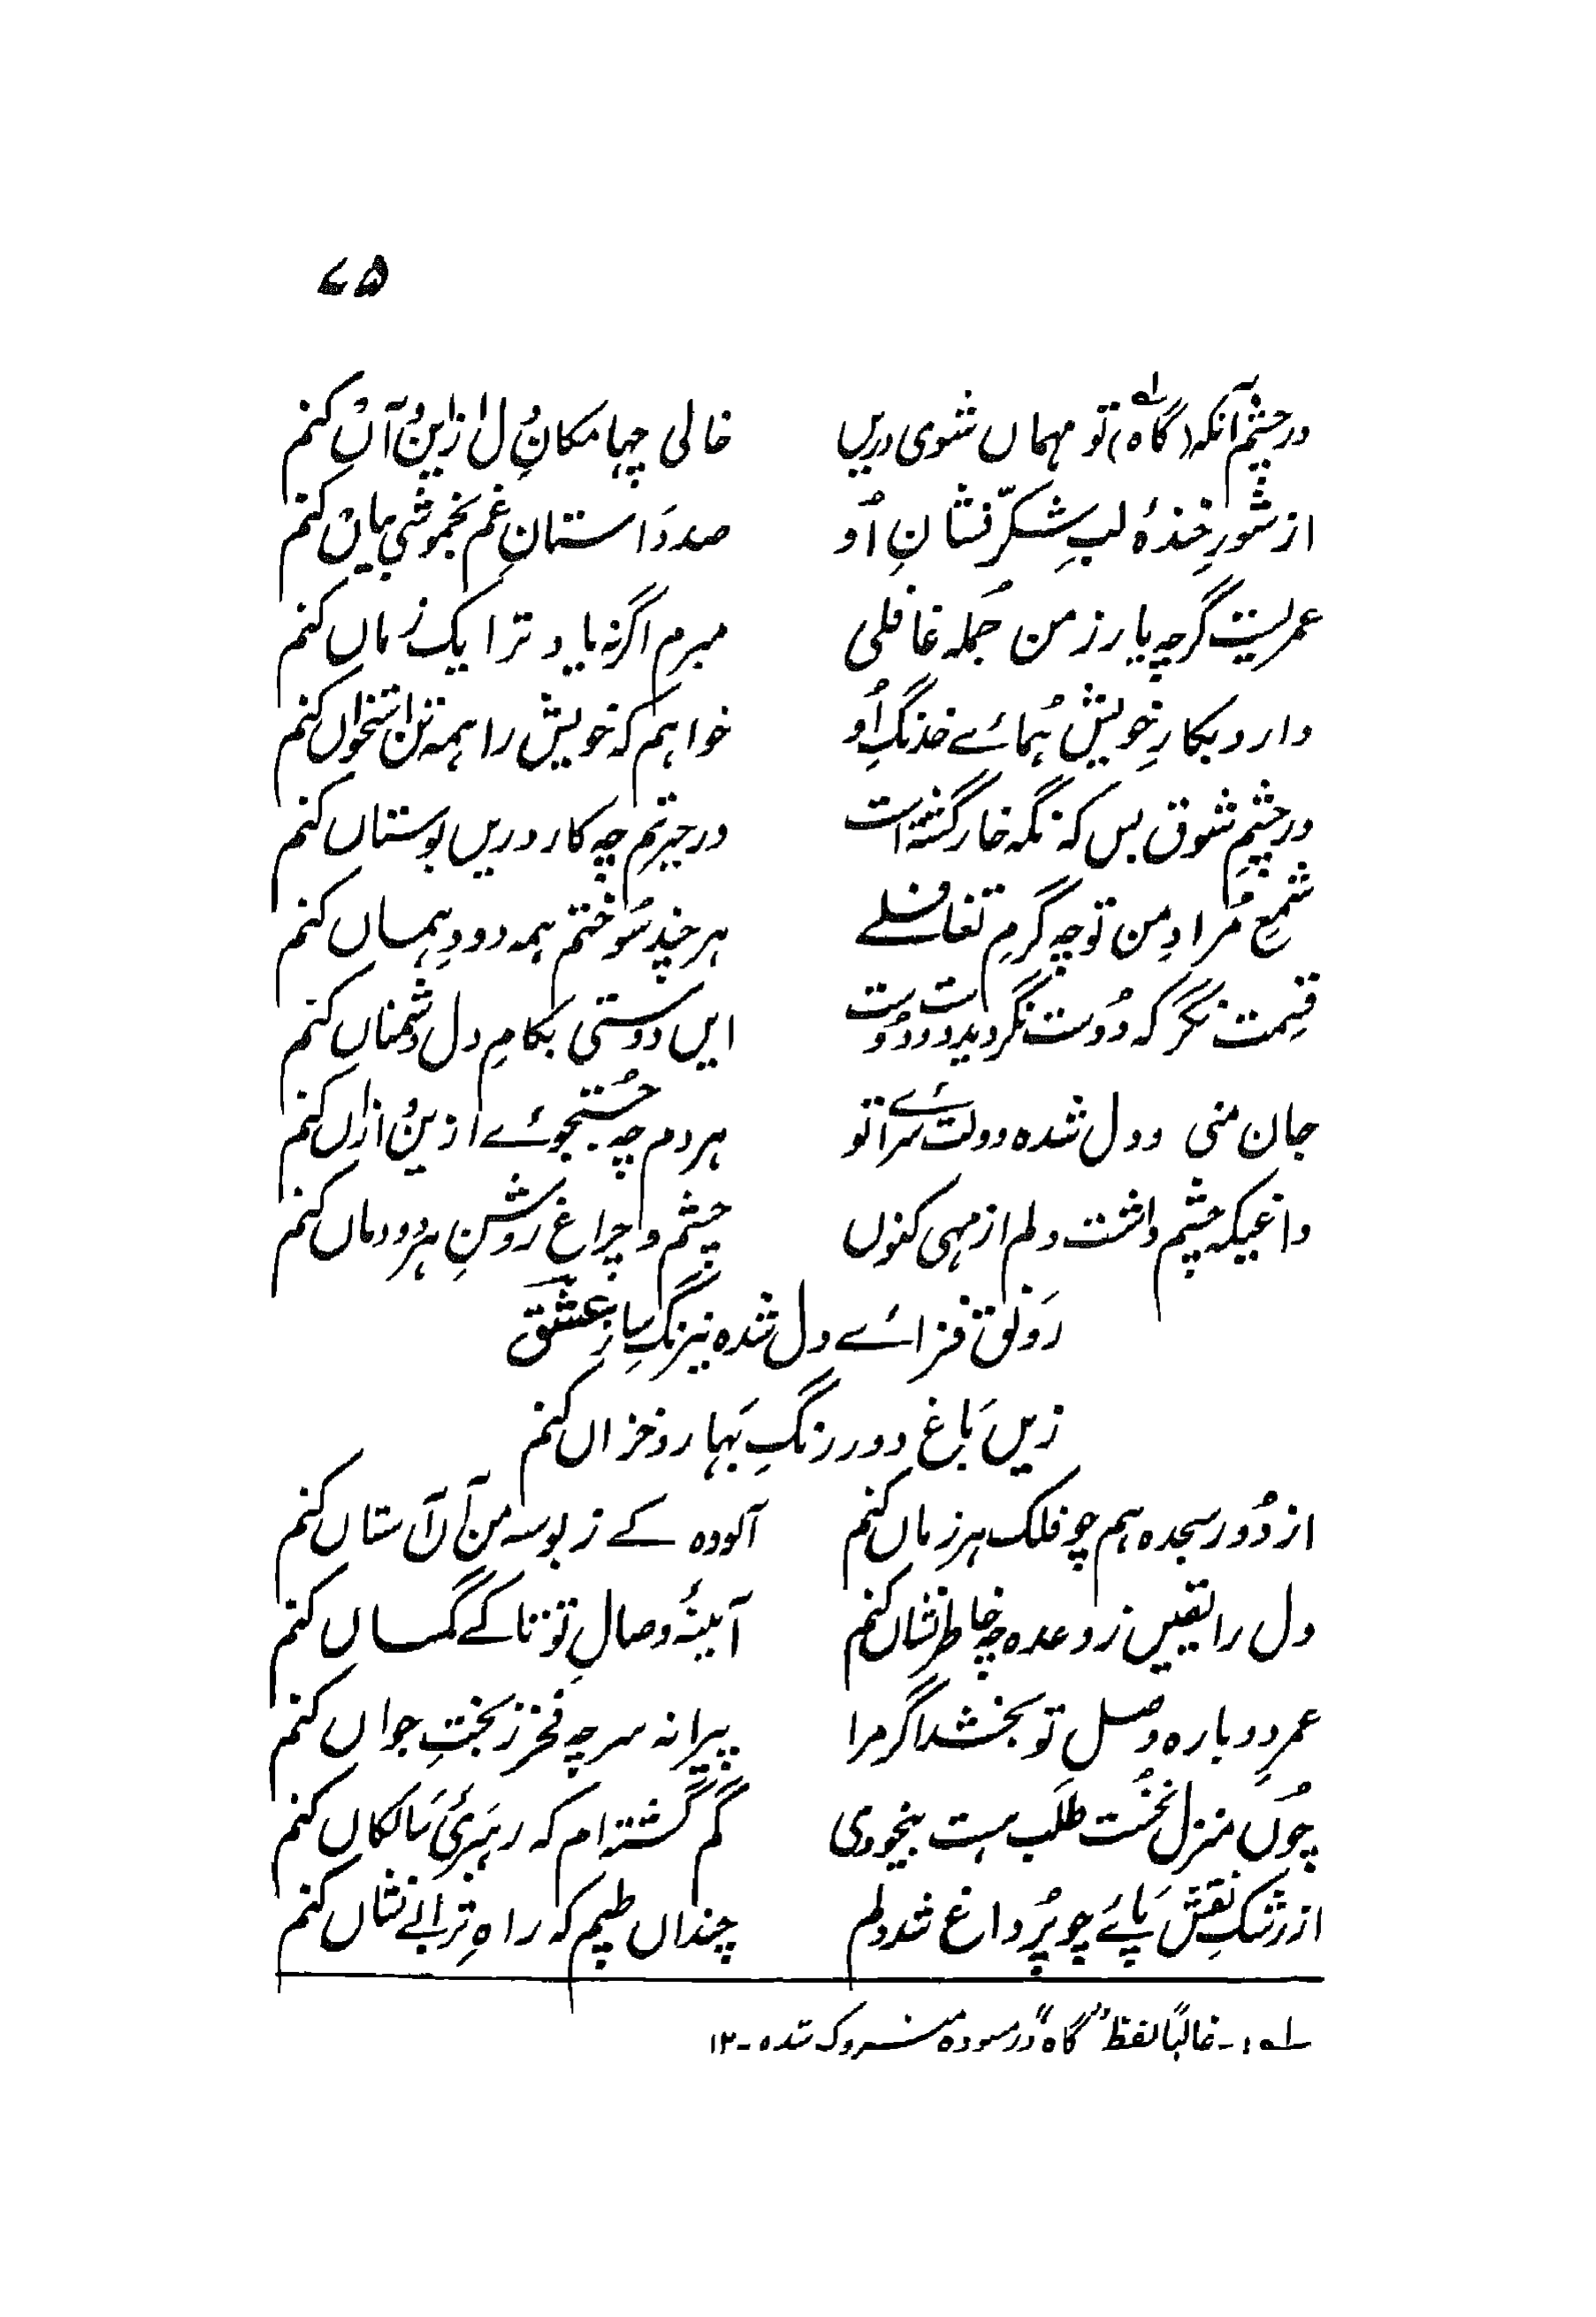 ۷۵
در چشم آنکه (گاہ)۱؎ تو مہماں شوی دریں خالی چہا مکانِ دل از این و آں کنم
از شورِ خندۂ لبِ شکّر نشانِ اُو صد داستانِ غم بخموشی بیاں کنم
عمریست گرچہ یار ز من جملہ غافلی میرم اگر نہ یاد ترا یک زماں کنم
دارد بکارِ خویش ہُمائے خدنگِ اُو خواہم کہ خویش را ہمہ تن استخواں کنم
در چشمِ شوق بس کہ نگہ خار گشتہ است در حیرتم چہ کار دریں بوستاں کنم
شمعِ مُرادِ من تو چہ گرمِ تغافلے ہر چند سوختم ہمہ دودِ ہماں کنم
قسمت نگر کہ دُوست نگردید دو دُوست ایں دوستی بکامِ دل دشمناں کنم
جان منی و دل شدہ دولت سرائے تو ہر دم چہ جُستجوئے ازین و ازاں کنم
داغیکہ چشم داشت دلم از مہی کنوں چشم و چراغ روشنِ ہر دودماں کنم
رَونق فزائے دل شدہ نیرنگِ سازِ عشق
زیں بَاغ دور رنگِ بَہار و خزاں کنم
از دُور سجدہ ہم چو فلک ہر زماں کنم آلودہ کے ز بوسہ من آں آستاں کنم
دل را یقیں ز وعدہ چہ خاطر نشاں کنم آئینۂ وصالِ تو تا کے گماں کنم
عمرِ دوبارہ وصلِ تو بخشد اگر مرا پیرانہ سر چہ فخر ز بختِ جواں کنم
چوں منزل نخُست طلَب ہست بیخودی گم گشتہ ام کہ رہبَریٔ سَالکاں کنم
از رشکِ نقش پَائے چو پُر داغ شد دلم چنداں طپم کہ راہِ ترا بے نشاں کنم
۱؎:۔ غالباً لفظ "گاہ" در مسودہ متروک شدہ۔ ۱۲